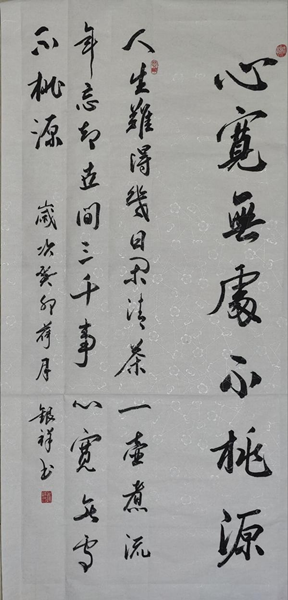 心寬無處不桃源
人生難得幾日閑清茶一壺煮流
年忘却世間三千事心寬無處
不桃源
歲次癸卯荷月
銀祥書